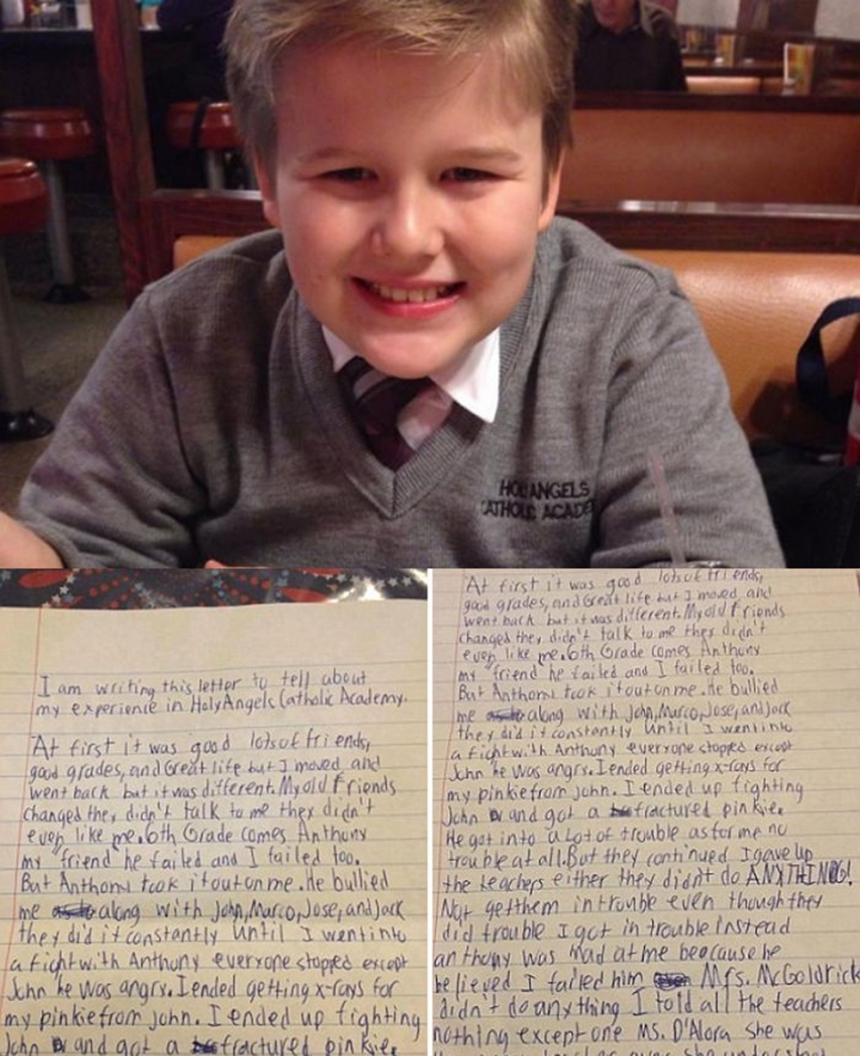 HOLY ANGELS
CATHOLIC ACADE
I am writing this letter to tell about
my experience in Holy Angels Catholic Academy.
At first it was good lots of friends,
good grades, and Great life but I moved and
went back but it was different. My old friends
changed they didn't talk to me they didn't
even like me. 6th Grade comes Anthony
my "friend" he failed and I failed too.
But Anthony took it out on me. He bullied
me along with John, Marco, Jose, and Jack
they did it constantly until I went into
a fight with Anthony everyone stopped except
John he was angry. I ended getting x-rays for
my pinkie from john. I ended up fighting
John and got a fractured pinkie.
At first it was good lots of friends,
good grades, and Great life but I moved and
went back but it was different. My old friends
changed they didn't talk to me they didn't
even like me. 6th Grade comes Anthony
my "friend" he failed and I failed too.
But Anthony took it out on me. He bullied
me along with John, Marco, Jose, and Jack
they did it constantly until I went into
a fight with Anthony everyone stopped except
John he was angry. I ended getting x-rays for
my pinkie from john. I ended up fighting
John and got a fractured pinkie.
He got into a lot of trouble as for me no
trouble at all. But they continued I gave up
the teachers either they didn't do ANYTHING!
Not get them in trouble even though they
did trouble I got in trouble instead
anthony was mad at me beocause he
believed I failed him Mrs. McGoldrick
didn't do anything I told all the teachers
nothing except one Ms. D'Alora she was